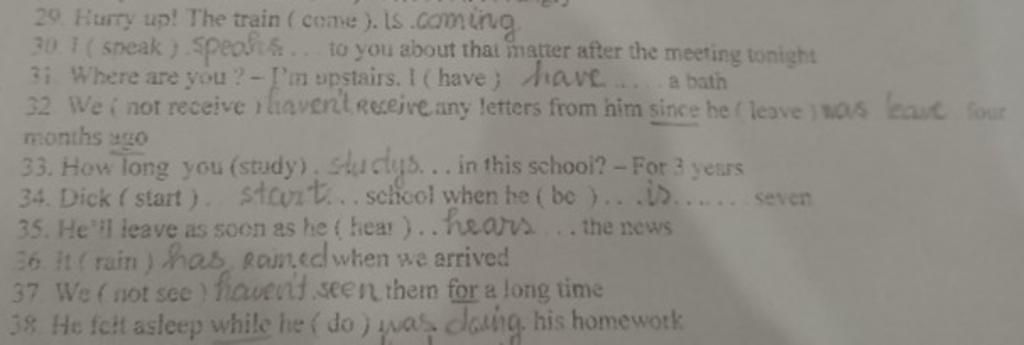 29. Hurry up! The train ( come ). is coming
30. I ( speak ) .speaks... to you about that matter after the meeting tonight
31. Where are you ? – I'm upstairs. I ( have ) have ..... a bath
32. We ( not receive ) haven't receive any letters from him since he ( leave ) was leave four
months ago
33. How long you (study) . studys... in this school? – For 3 years
34. Dick ( start ). start... school when he ( be ).. .is....... seven
35. He'll leave as soon as he ( hear ) . . hears ... the news
36. It ( rain ) has rained when we arrived
37. We ( not see ) haven't seen them for a long time
38. He felt asleep while he ( do ) was doing. his homework